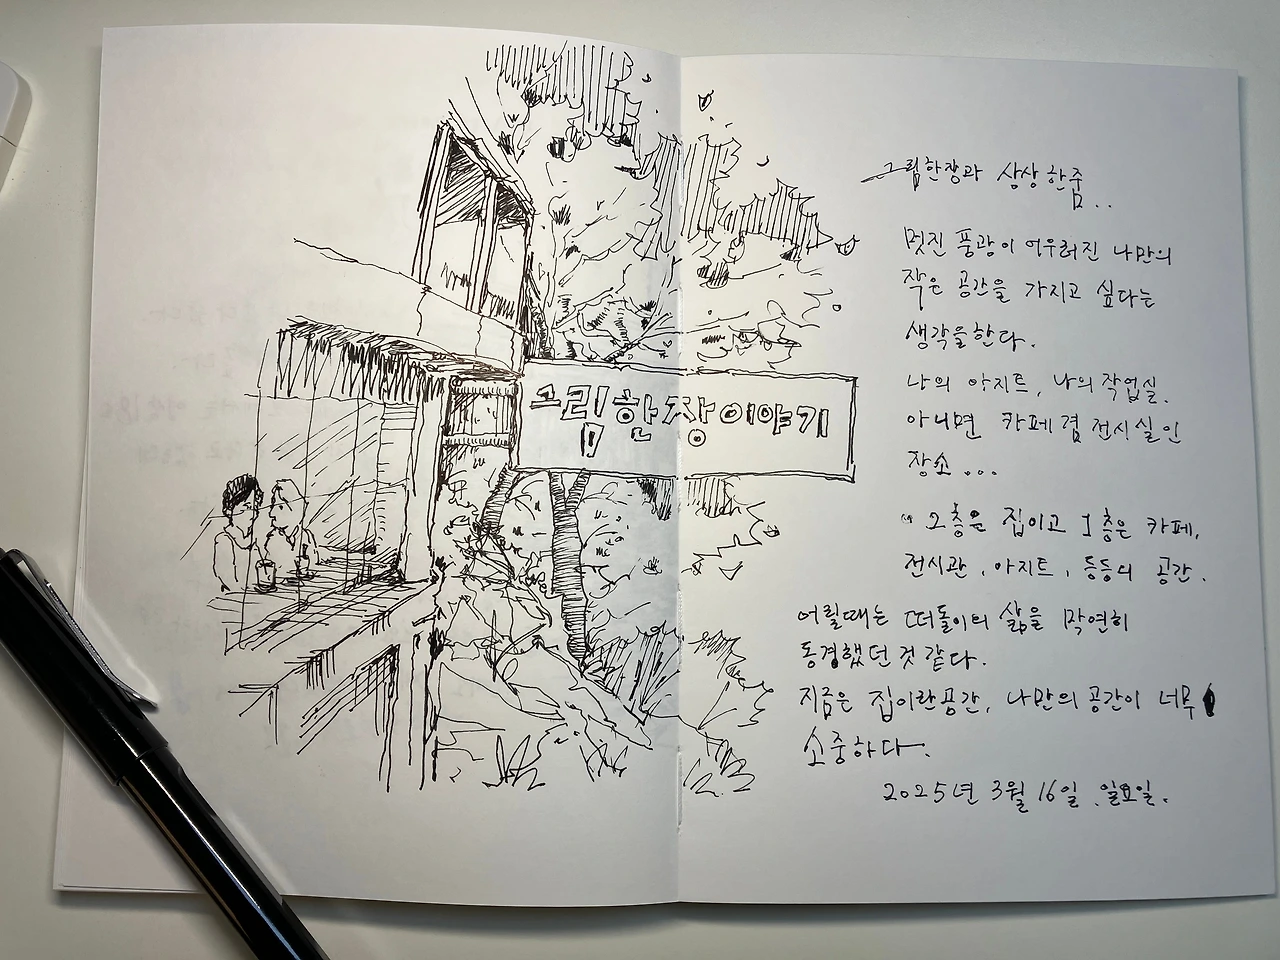 그림한장이야기
그림한장과 상상한줌..
멋진 풍광이 어우러진 나만의
작은 공간을 가지고 싶다는
생각을한다.
나의 아지트, 나의 작업실.
아니면 카페 겸 전시실인
장소...
" 2층은 집이고 1층은 카페,
전시관, 아지트, 등등의 공간.
어릴때는 떠돌이의 삶을 막연히
동경했던 것 같다.
지금은 집이란공간, 나만의 공간이 너무
소중하다.
2025년 3월 16일 .일요일.